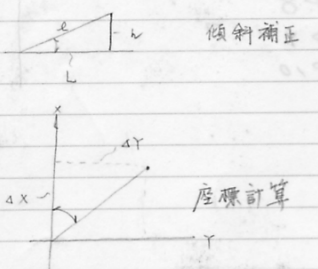 l
h
傾斜補正
L
X
ΔY
ΔX
座標計算
Y